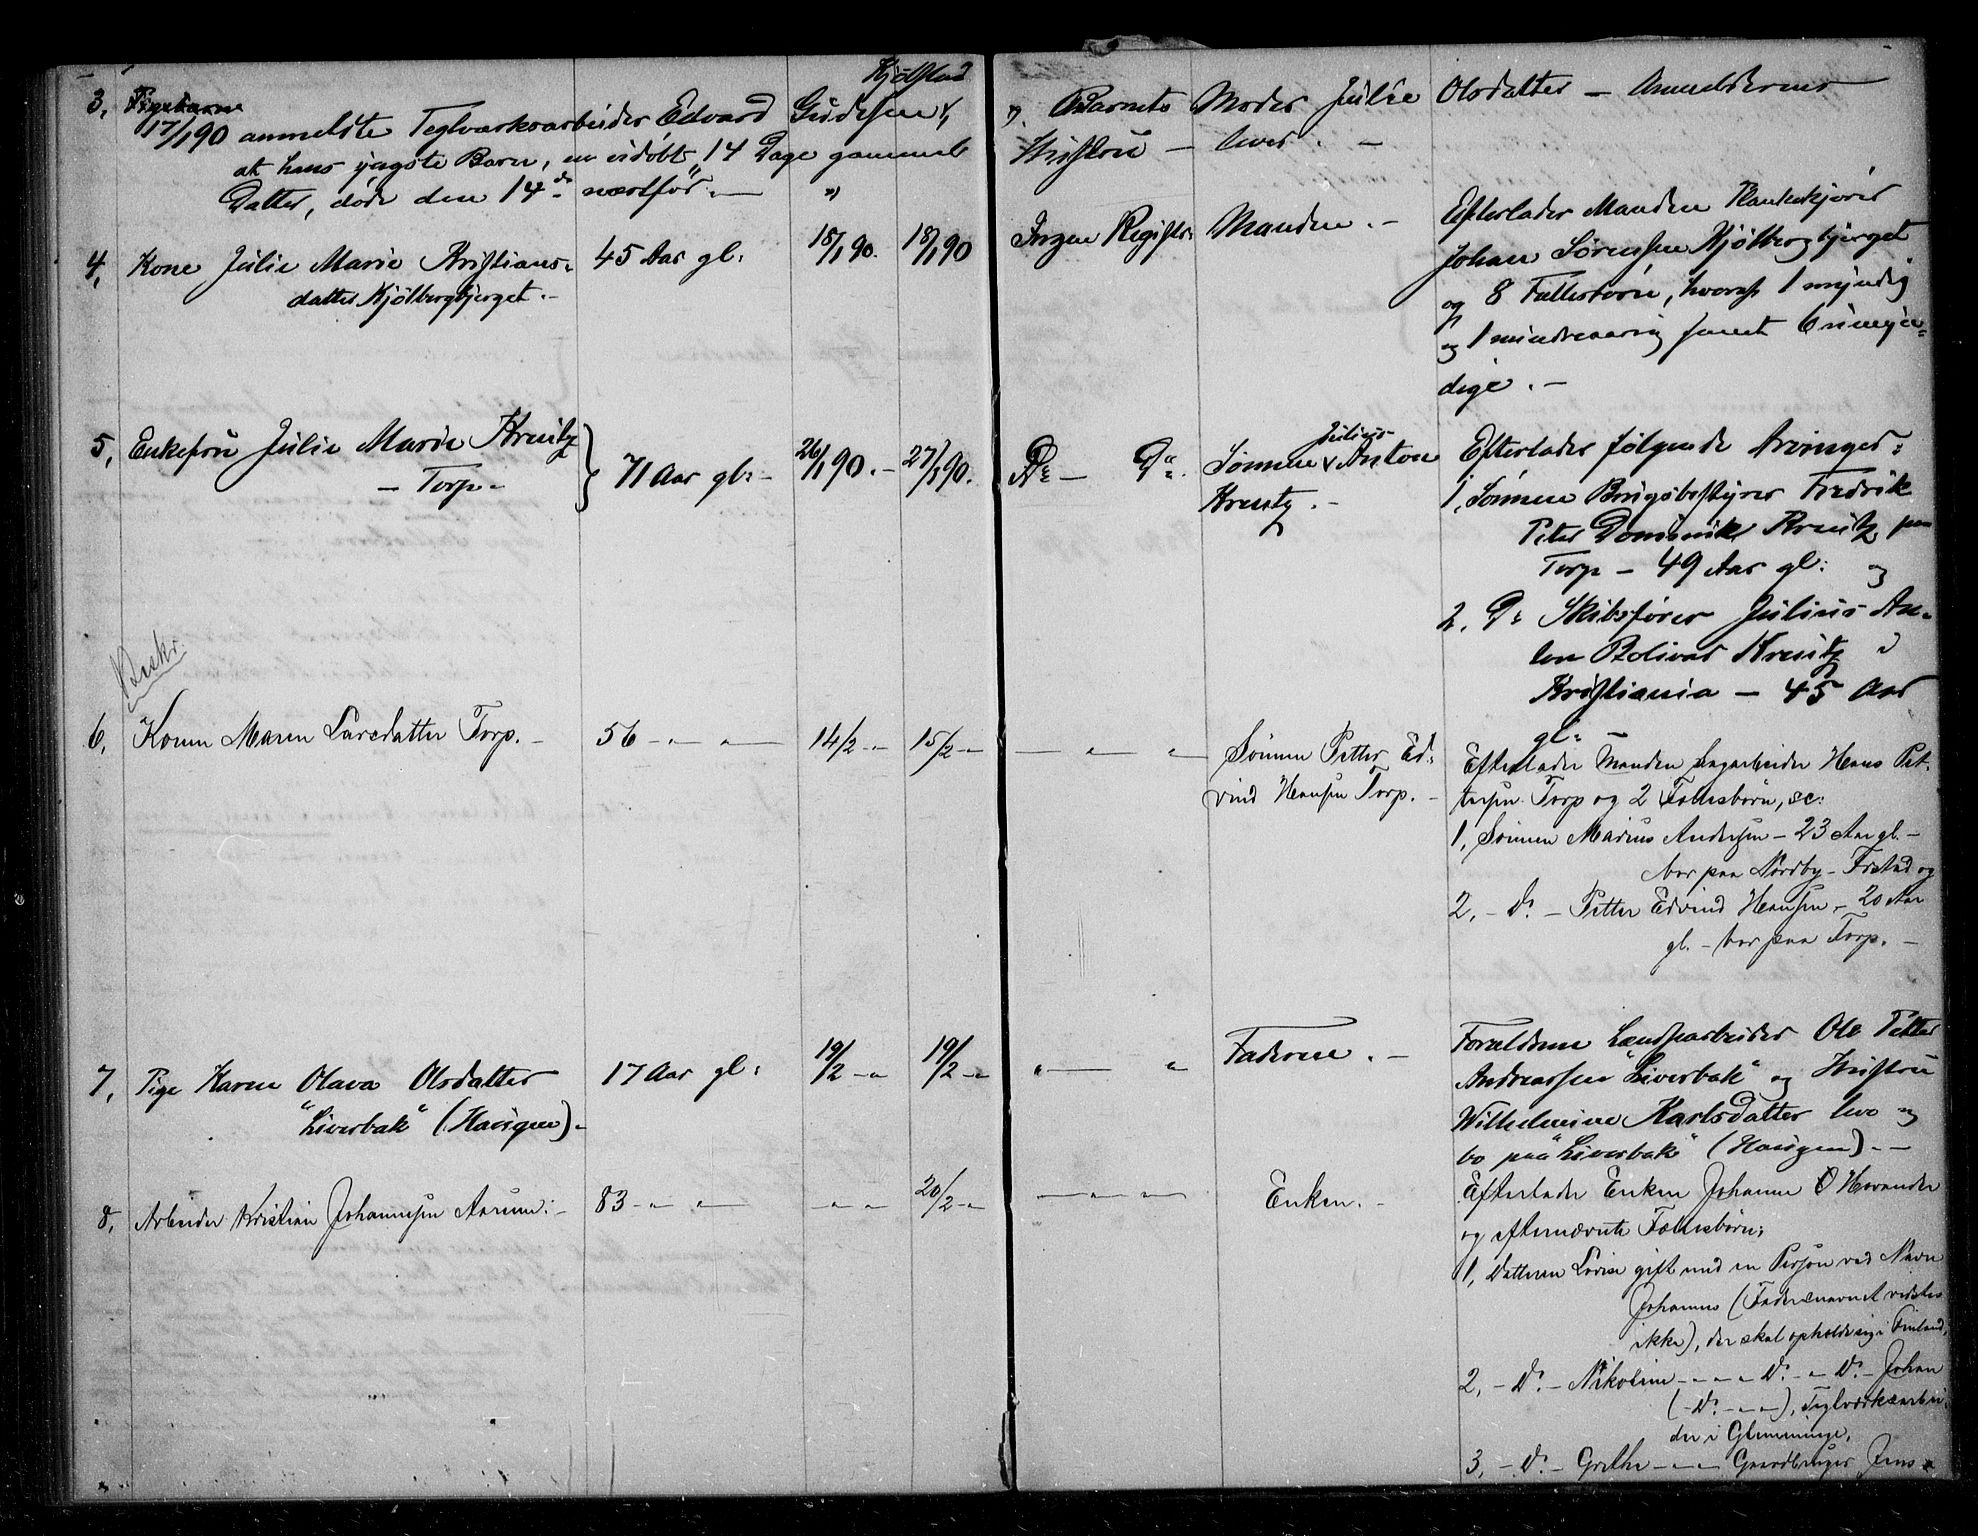 Kjølstad
3, Pigebarn
17/1 90 anmeldte Teglværksarbeider Edvard Gudesen
at hans yngste Barn, en udöbt 14 Dage gammel
Datter, døde den 14de næstför. —
Barnets Moder Julie Olsdatter — Anmelderens
Hustru — lever. —
4, Kone Julie Marie Kristians-
datter Kjölbergbjerget. —
45 Aar gl:
18/1 90. 18/1 90
Ingen Registr:
Manden. —
Efterlader Manden Plankekjører
Johan Sørensen Kjölbergbjerget
og 8 Fællesbörn, hvoraf 1 myndig
og 1 mindreaarig samt 6 umyn-
dige. —
5, Enkefru Julie Marie Kreutz
— Torp —
71 Aar gl: —
26/1 90. — 27/1 90.
Do — Do.
Julius
Sønnen Anton
Kreutz. —
Efterlader følgende Arvinger:
1, Sønnen Brugsbestyrer Fredrik
Peter Dominik Kreutz paa
Torp — 49 Aar gl: og
2, Do Skibsfører Julius An-
ton Bolivar Kreutz i
Kristiania — 45 Aar
gl: —
Beskr.
6, Konen Maren Larsdatter Torp. —
56 — " — " —
14/2 — " 15/2 — "
— " "
Sönnen Petter Ed-
vind Hansen Torp. —
Efterlader Manden Sagarbeider Hans Pet-
tersen Torp og 2 Fællesbørn, sc:
1, Sönnen Marius Andersen — 23 Aar gl. —
bor paa Nordby — Fristad og
2, — Do — Petter Edvind Hansen — 20 Aar
gl. — bor paa Torp. —
7, Pige Karen Olava Olsdatter
"Liverbak" (Haugen). —
17 Aar gl:
19/2 — " 19/2 — "
" — "
Faderen. —
Forældrene Landsarbeider Ole Petter
Andreassen "Liverbak" og Hustru
Wilhelmine Karlsdatter leve og
bo paa "Liverbak" (Haugen). —
8, Arbeider Kristian Johannesen Aarum: —
83 — " — "
— " — " 20/2 — "
— " — " —
Enken. —
Efterlader Enken Johanne
og efternævnte Fællesbørn:
1, Datteren Lovise gift med en Person ved Navn
Johannes (Fadersnavnet vidstes
ikke), der skal opholde sig i Finland,
2, — Do — Nikoline — " — " Do — " Do — Johan
(— Do — " — "), Teglværksarbei-
der i Glemminge,
3, — Do — Grethe — " — Gaardbruger Jens